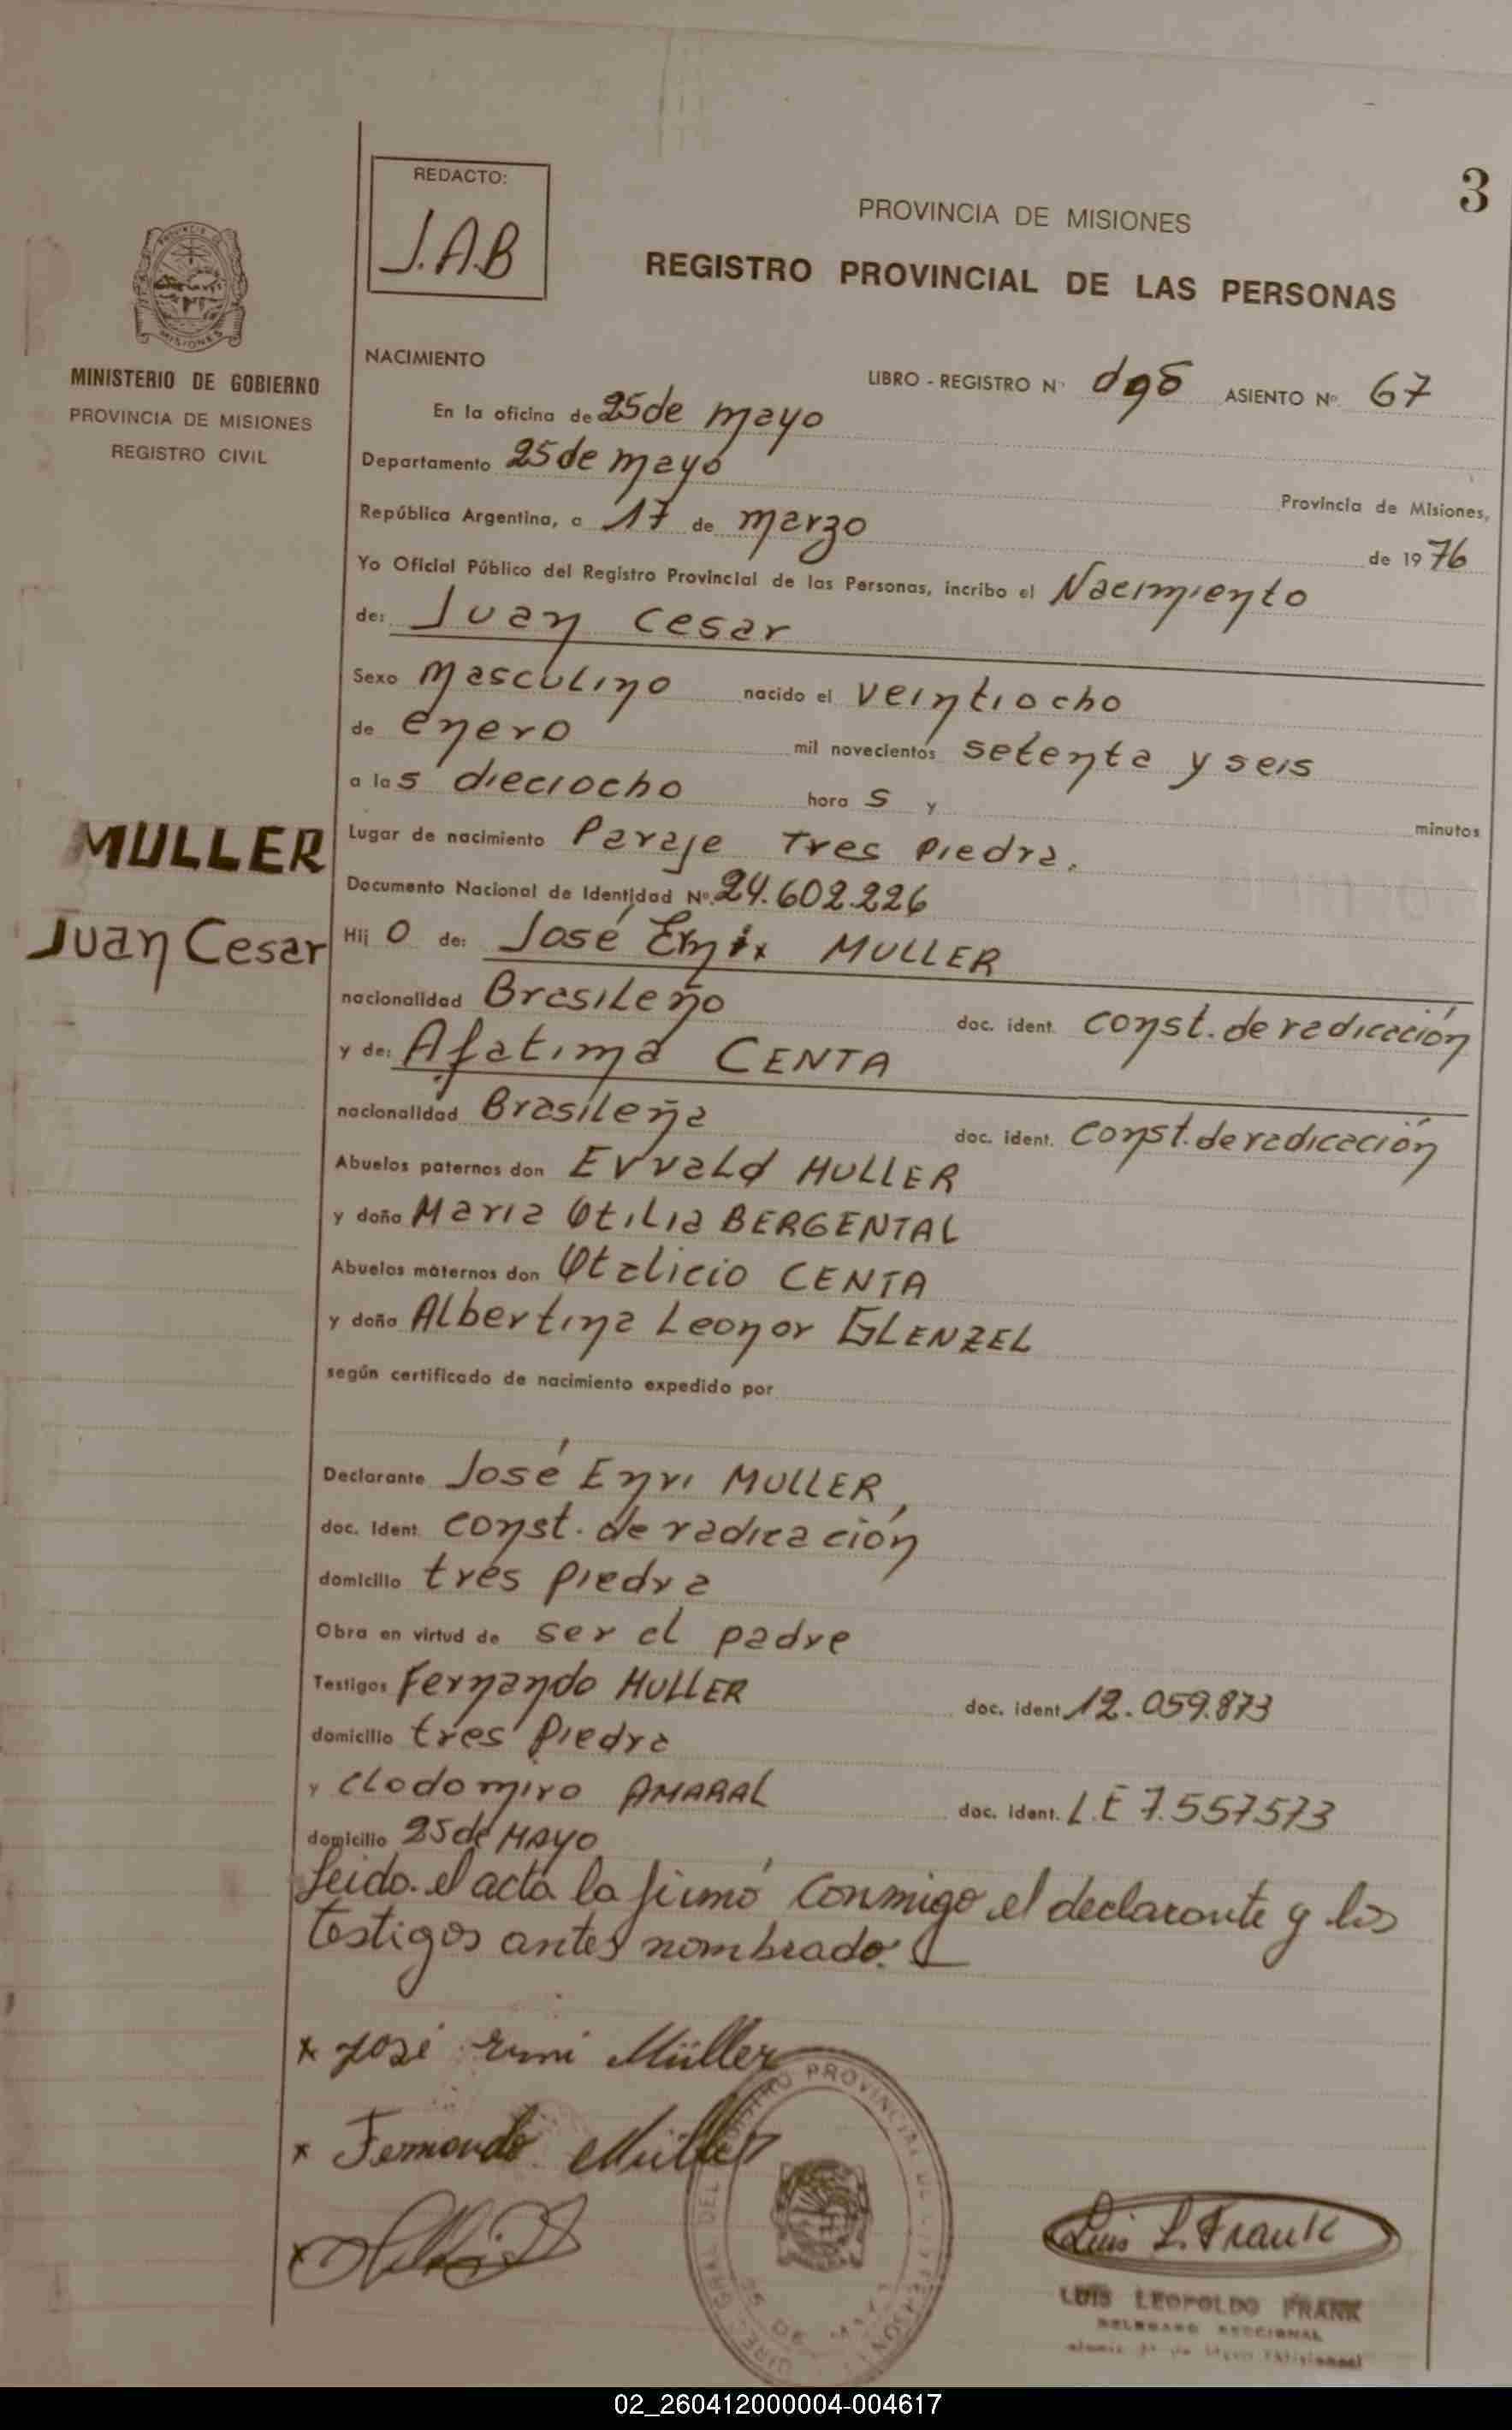 3
REDACTO:
J.A.B
PROVINCIA DE MISIONES
REGISTRO PROVINCIAL DE LAS PERSONAS
MINISTERIO DE GOBIERNO
PROVINCIA DE MISIONES
REGISTRO CIVIL
NACIMIENTO
LIBRO - REGISTRO Nº ASIENTO Nº 67
En la oficina de 25 de mayo
Departamento 25 de mayo Provincia de Misiones,
República Argentina, a 17 de marzo de 1976
Yo Oficial Público del Registro Provincial de las Personas, incribo el Nacimiento
de: Juan Cesar
Sexo masculino nacido el veintiocho
de enero mil novecientos setenta y seis
a las dieciocho horas y minutos
MULLER
Juan Cesar
Lugar de nacimiento Paraje Tres Piedra.
Documento Nacional de Identidad Nº 24.602.226
Hijo de: José MULLER
nacionalidad Brasileño doc. ident. const. de radicación
y de: Afatima CENTA
nacionalidad Brasileña doc. ident. const. de radicación
Abuelos paternos don Evvald MULLER
y doña Maria Otilia BERGENTAL
Abuelos maternos don Otalicio CENTA
y doña Albertina Leonor GLENZEL
según certificado de nacimiento expedido por
Declarante José Enri MULLER,
doc. Ident. const. de radicación
domicilio tres piedra
Obra en virtud de ser el padre
Testigos Fernando MULLER doc. ident. 12.059.873
domicilio tres Piedra
y Clodomiro AMARAL doc. ident. L.E 7.557573
domicilio 25 de MAYO
Leido el acta la firmó conmigo el declarante y los
testigos antes nombrado.
x José Müller
x Fernando Müller
x
Luis L. Frank
LUIS LEOPOLDO FRANK
DELEGADO SECCIONAL
02_260412000004-004617